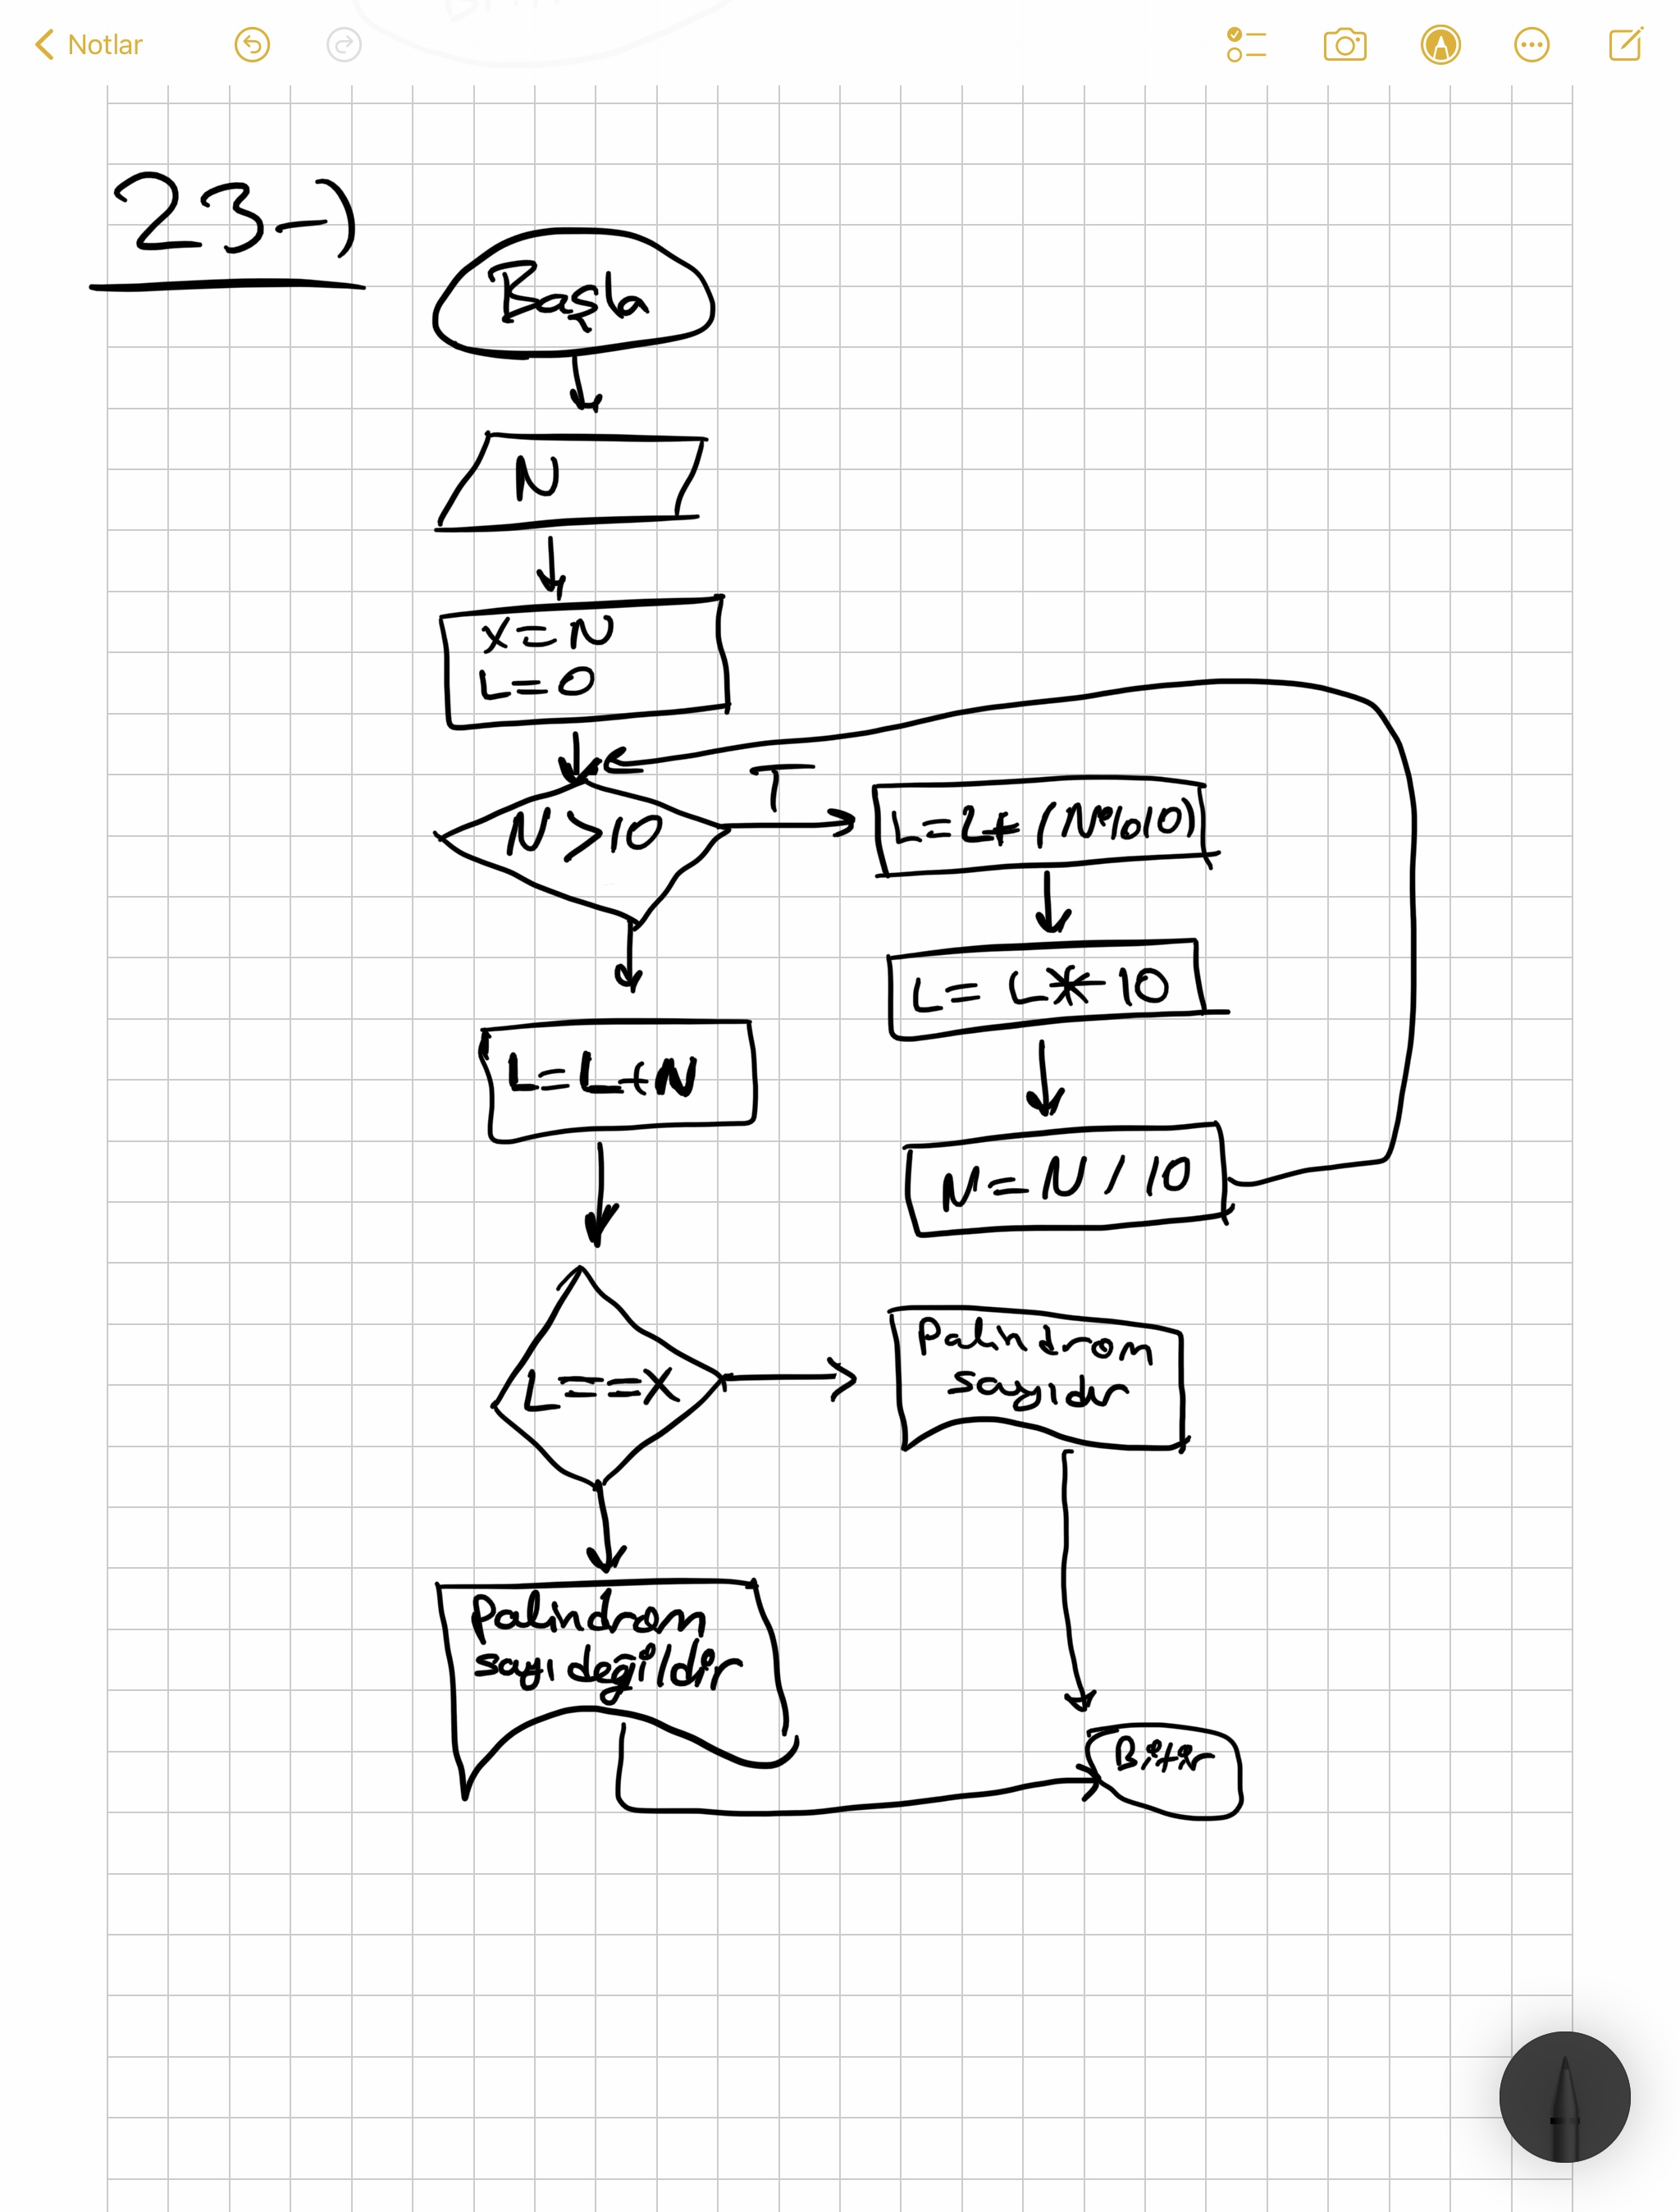 Notlar
23-)
Başla
N
X=N
L=0
N>10
T
L=L+(N%10)
L=L*10
N=N/10
L=L+N
L==X
Palindrom
sayıdır
Palindrom
sayı değildir
Bitir